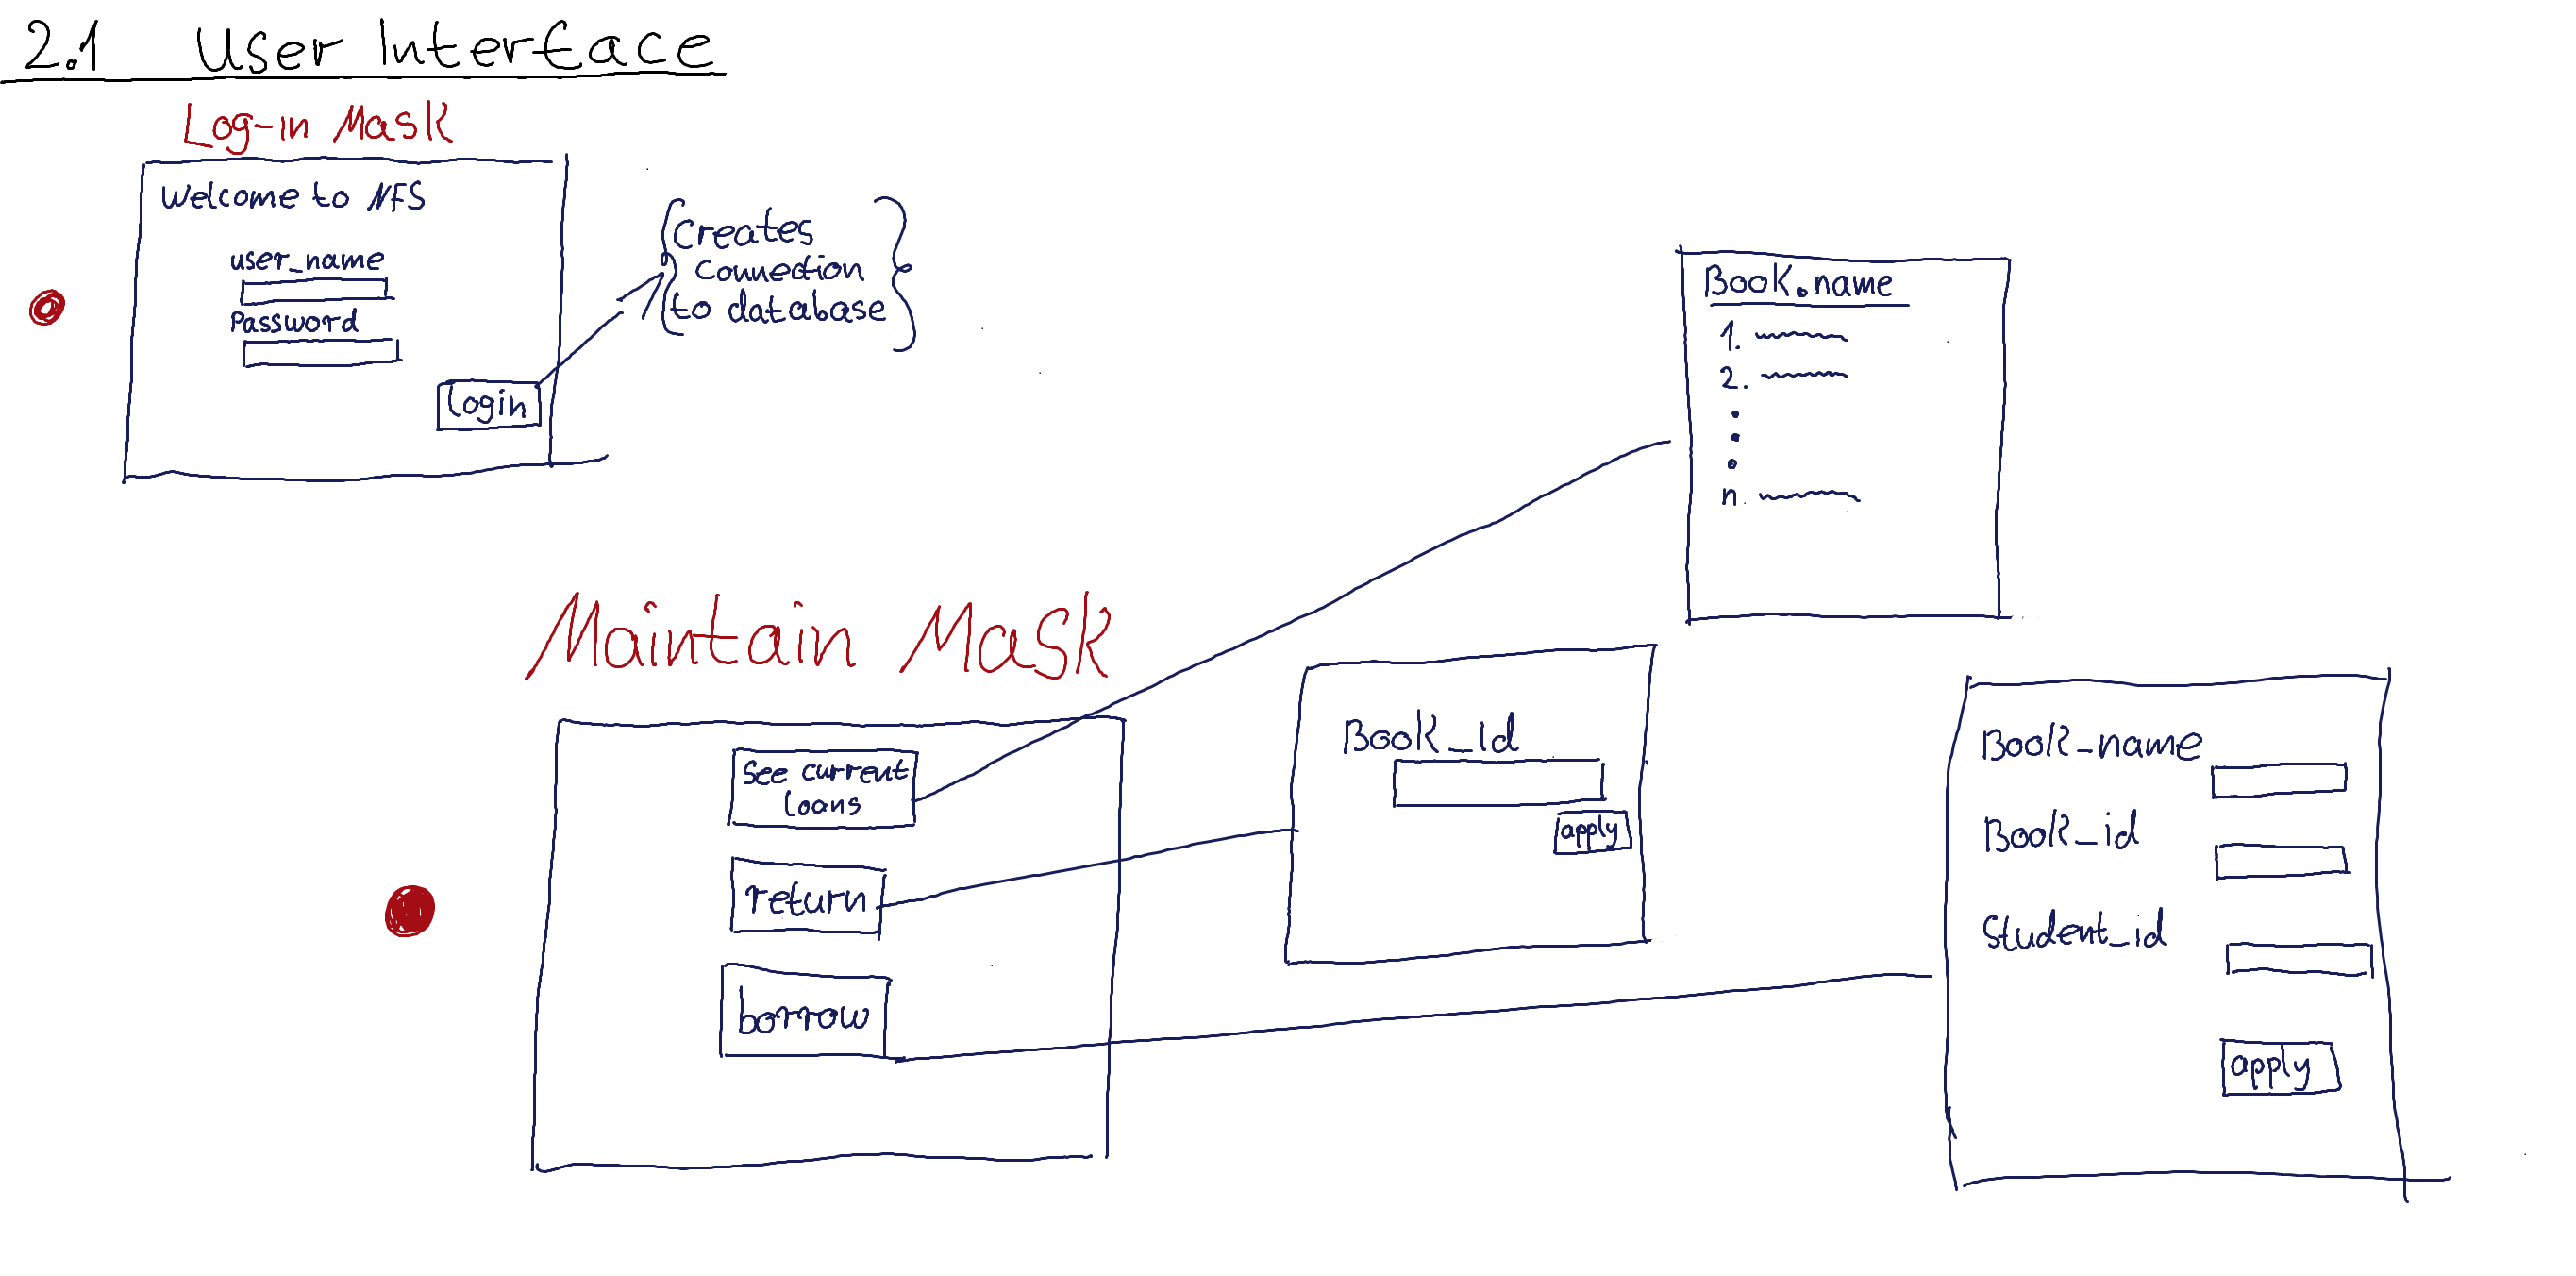 2.1 User Interface
Log-in Mask
Welcome to NFS
user_name
Password
login
Creates
connection
to database
Book.name
1.
2.
n.
Maintain Mask
See current
loans
return
borrow
Book_Id
apply
Book_name
Book_id
Student_id
apply